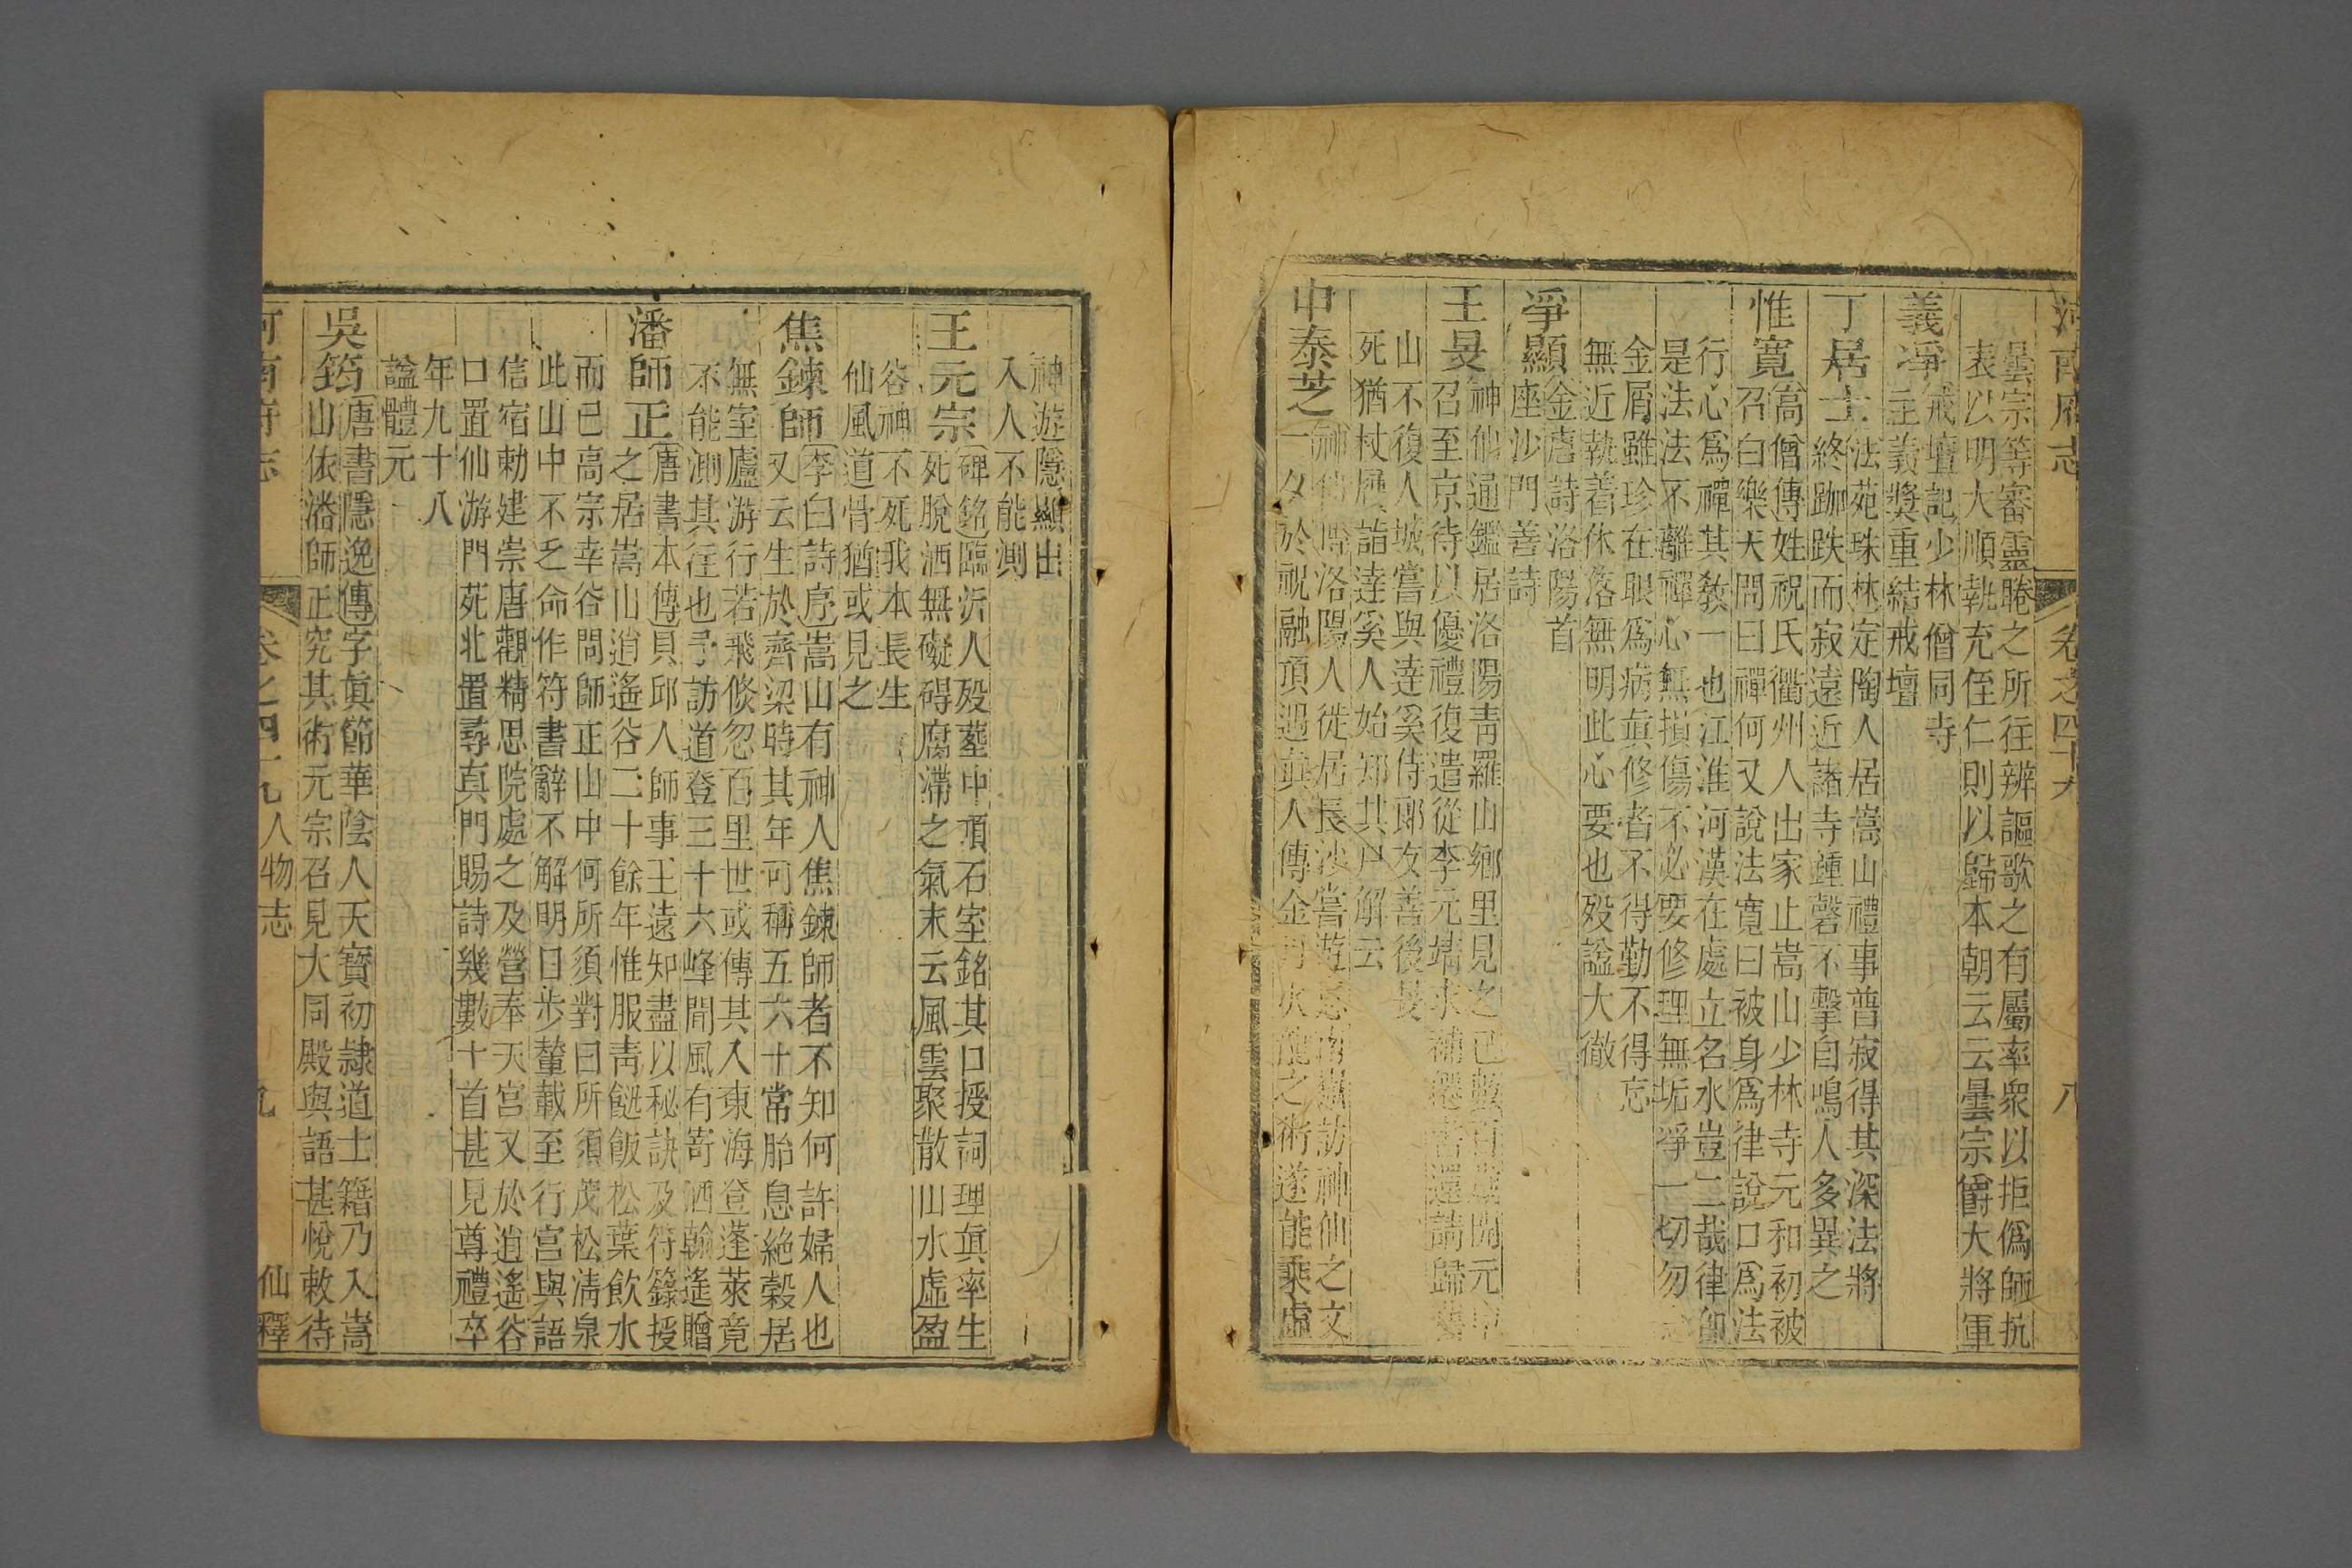 河南府志 卷之四十九 八
曇宗等審靈睠之所往辨謳歌之有屬率衆以拒僞師抗
表以明大順執充侄仁則以歸本朝云云曇宗爵大將軍
義淨戒壇記少林僧同寺
主義奬重結戒壇
丁居士法苑珠林定陶人居嵩山禮事普寂得其深法將
終跏趺而寂遠近諸寺鍾磬不擊自鳴人多異之
惟寬高僧傳姓祝氏衢州人出家止嵩山少林寺元和初被
召白樂天問曰禪何又說法寬曰被身爲律說口爲法
行心爲禪其敎一也江淮河漢在處立名水豈二哉律卽
是法法不離禪心無損傷不必要修理無垢淨一切勿
金屑雖珍在眼爲病眞修者不得勤不得忘
無近執着休落無明此心要也歿謚大徹
爭顯金唐詩洛陽首
座沙門善詩
王旻神仙通鑑居洛陽靑羅山鄕里見之已數百歲開元中
召至京待以優禮復遣從李元靖求補
還請歸
山不復人城嘗與達奚侍郞友善後旻
死猶杖屨詣達奚人始知其尸解云
申泰芝洛陽人徙居長沙嘗遊訪神仙之文
一夕於祝融頂遇眞人傳金丹火龍之術遂能乘虛
神遊隱顯出
入人不能測
王元宗碑銘臨沂人歿塟中頂石室銘其口授詞理眞率生
死脫洒無礙碍腐滯之氣末云風雲聚散山水虛盈
谷神不死我本長生
仙風道骨猶或見之
焦鍊師李白詩序嵩山有神人焦鍊師者不知何許婦人也
又云生於齊梁時其年可稱五六十常胎息絶穀居
無室廬游行若飛倏忽百里世或傳其入東海登蓬萊竟
不能測其往也予訪道登三十六峰間風有寄洒翰遙贈
潘師正唐書本傳貝邱人師事王遠知盡以秘訣及符籙授
之居嵩山逍遙谷二十餘年惟服靑飯松葉飲水
而已高宗幸谷問師正山中何所須對曰所須茂松淸泉
此山中不乏命作符書辭不解明日步輦載至行宮與語
信宿勅建崇唐觀精思院處之及營奉天宮又於逍遙谷
口置仙游門苑北置尋真門賜詩幾數十首甚見尊禮卒
年九十八
謚體元
吳筠唐書隱逸傳字眞節華陰人天寶初隷道士籍乃入嵩
山依潘師正究其術元宗召見大同殿與語甚悅敕待
河南府志 卷之四十九人物志 九 仙釋